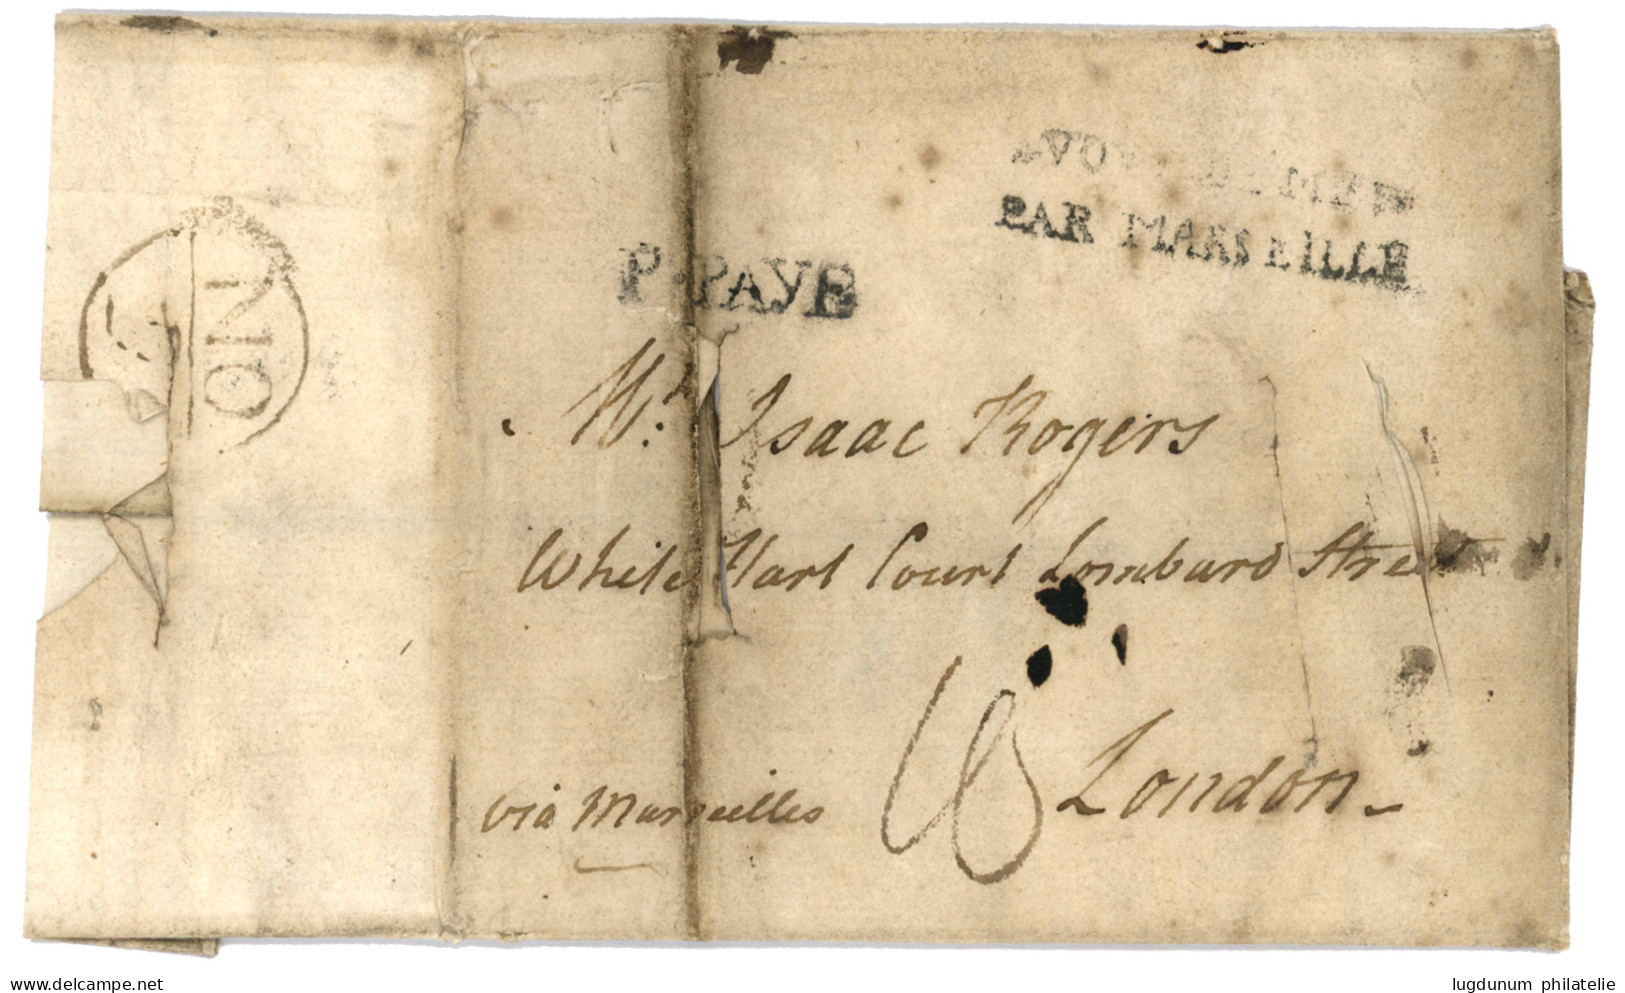 PAR MARSEILLE
P. PAYE
NO
Mr. Isaac Rogers
White Hart Court Lombard Street
London
via Marseilles
www.delcampe.net
lugdunum philatelie